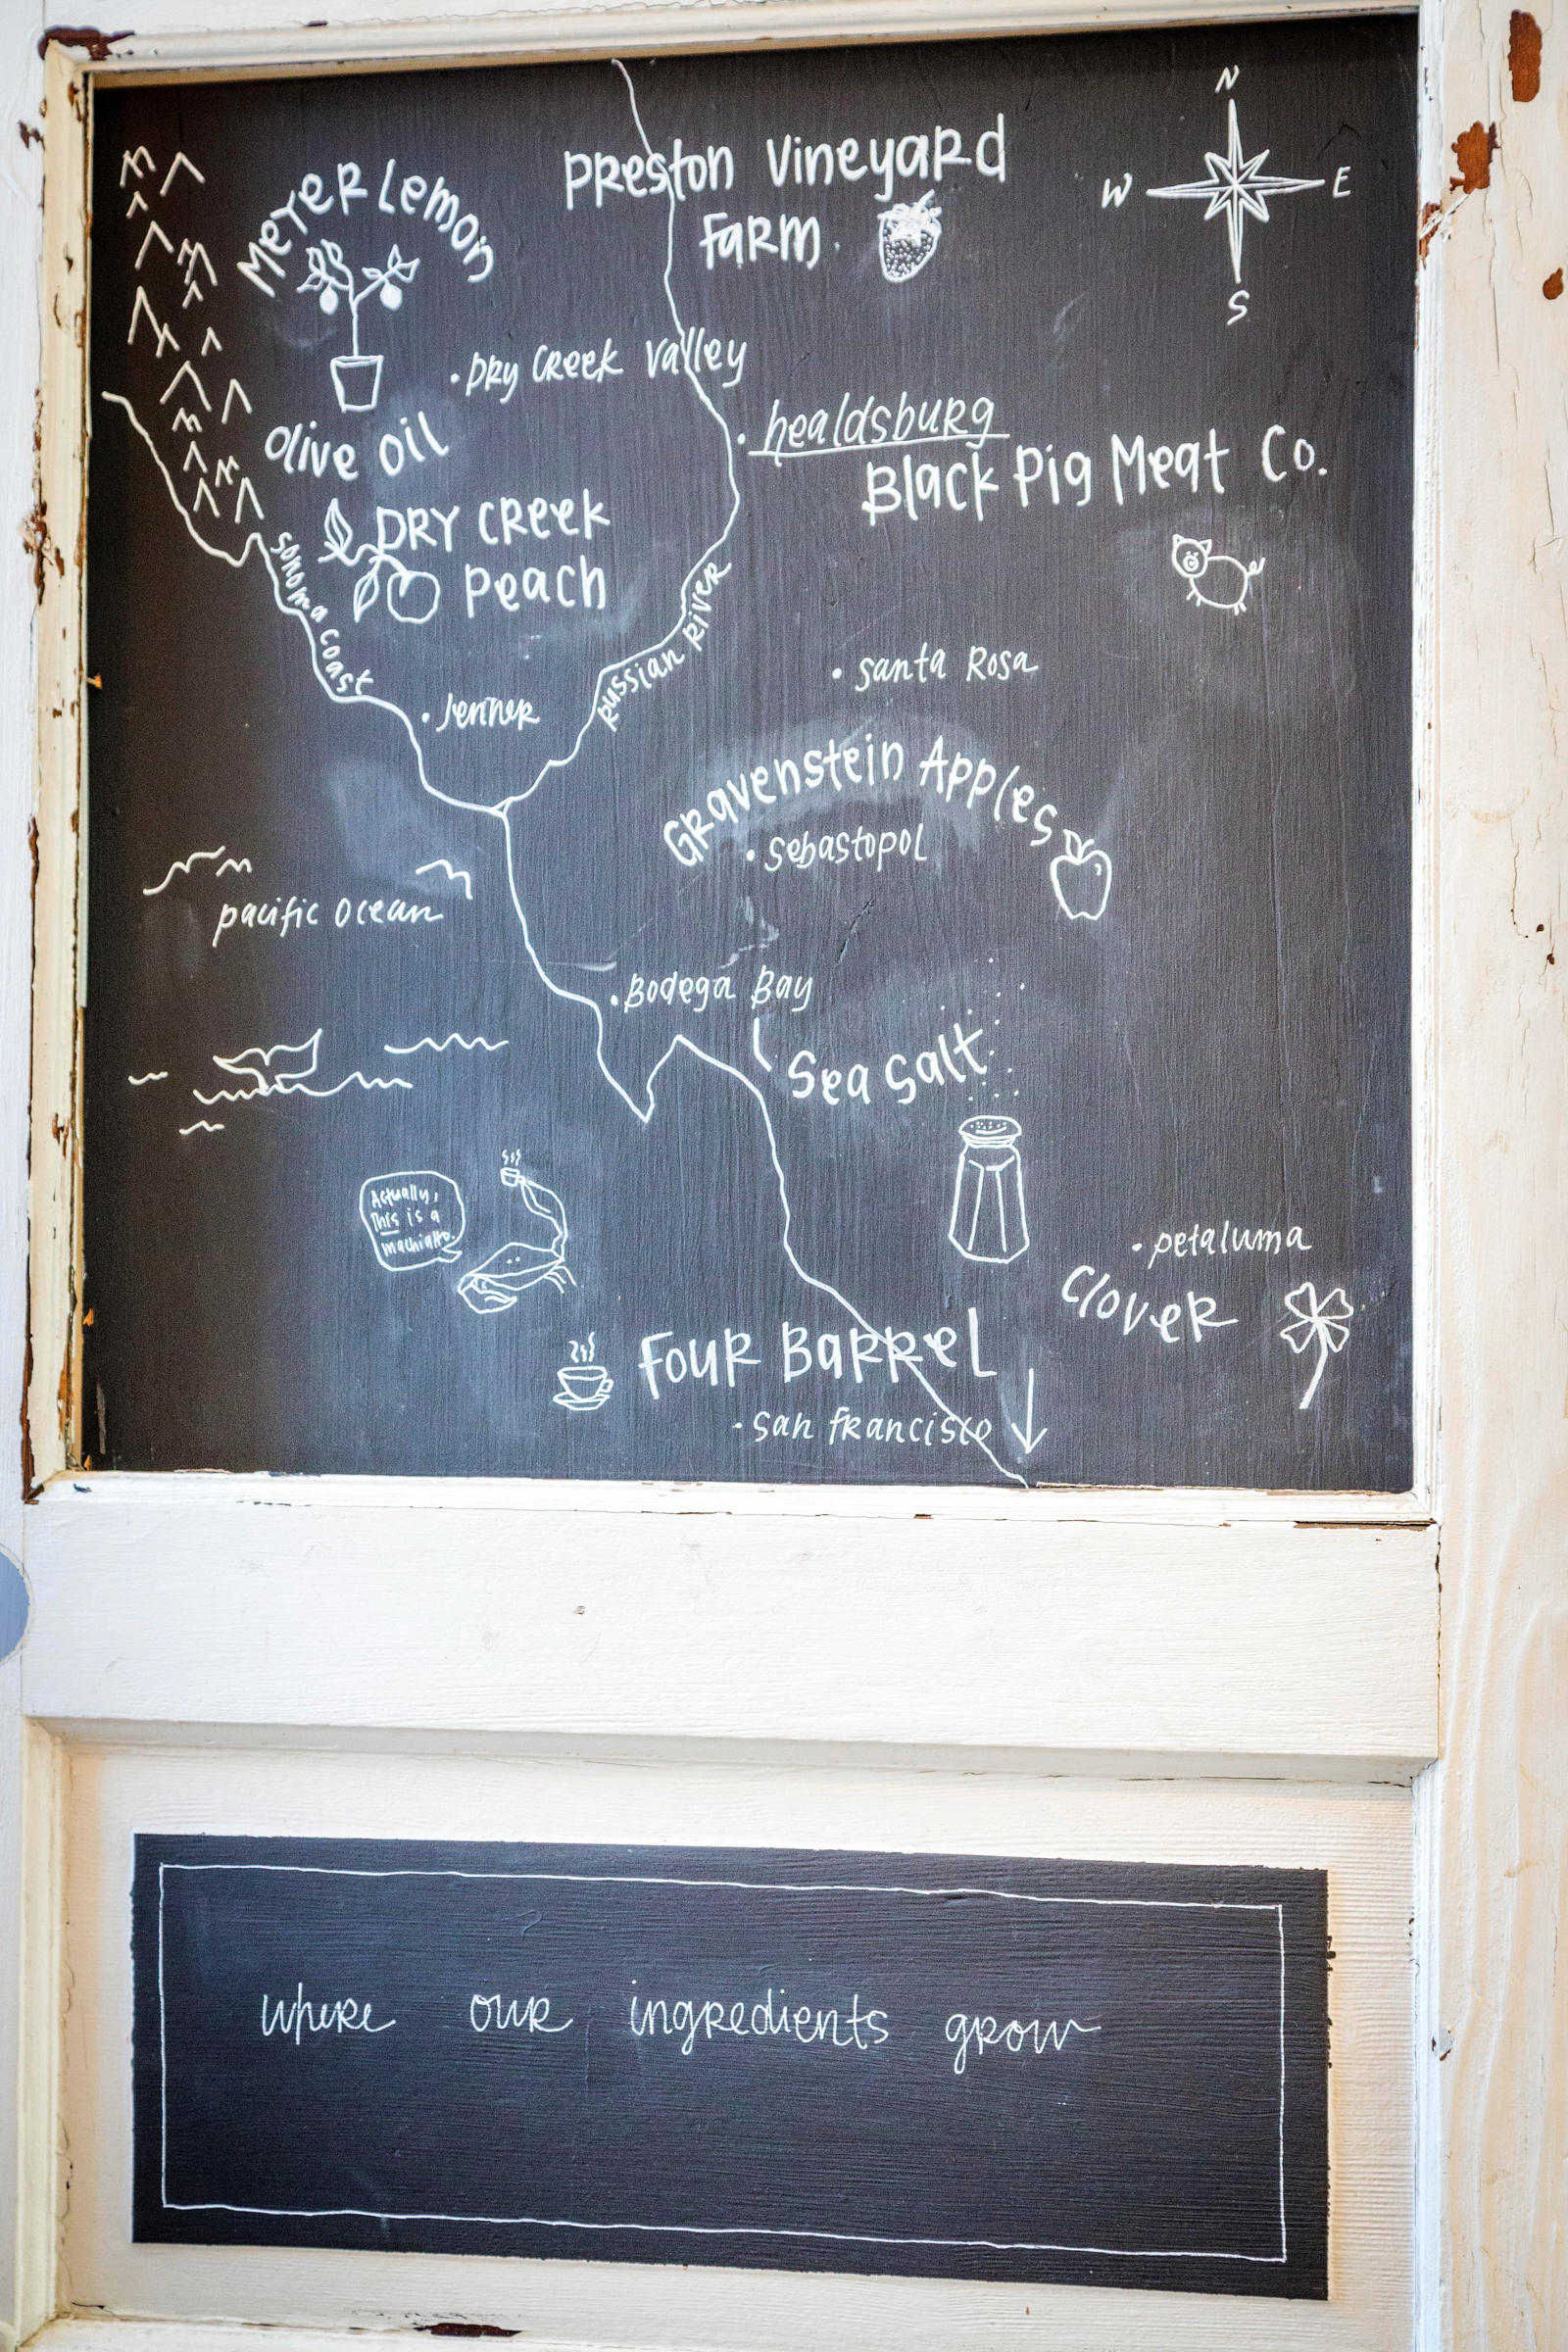 N
W E
S
Meyer Lemon
Preston Vineyard
Farm
Dry Creek Valley
healdsburg
Olive Oil
Black Pig Meat Co.
Dry Creek
Peach
Sonoma Coast
Russian River
Jenner
Santa Rosa
Gravenstein Apples
Sebastopol
pacific ocean
Bodega Bay
Sea Salt
Actually,
This is a
machiatto.
petaluma
Clover
Four Barrel
San Francisco
where our ingredients grow